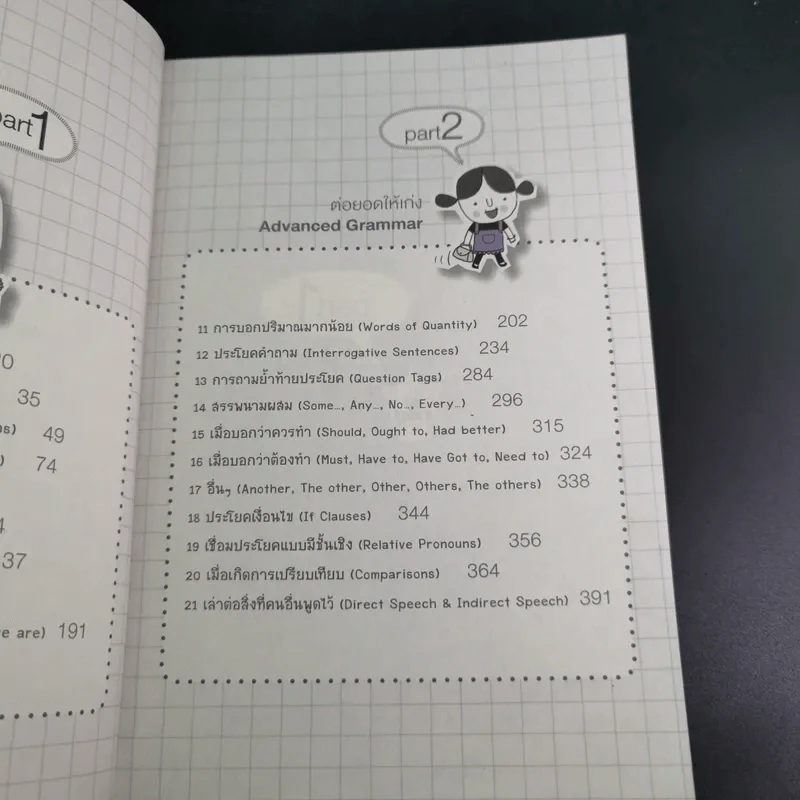 part1
35
49
74
37
are) 191
part2
ต่อยอดให้เก่ง
Advanced Grammar
11 การบอกปริมาณมากน้อย (Words of Quantity) 202
12 ประโยคคำถาม (Interrogative Sentences) 234
13 การถามย้ำท้ายประโยค (Question Tags) 284
14 สรรพนามผสม (Some…, Any…, No…, Every…) 296
15 เมื่อบอกว่าควรทำ (Should, Ought to, Had better) 315
16 เมื่อบอกว่าต้องทำ (Must, Have to, Have Got to, Need to) 324
17 อื่นๆ (Another, The other, Other, Others, The others) 338
18 ประโยคเงื่อนไข (If Clauses) 344
19 เชื่อมประโยคแบบมีชั้นเชิง (Relative Pronouns) 356
20 เมื่อเกิดการเปรียบเทียบ (Comparisons) 364
21 เล่าต่อสิ่งที่คนอื่นพูดไว้ (Direct Speech & Indirect Speech) 391